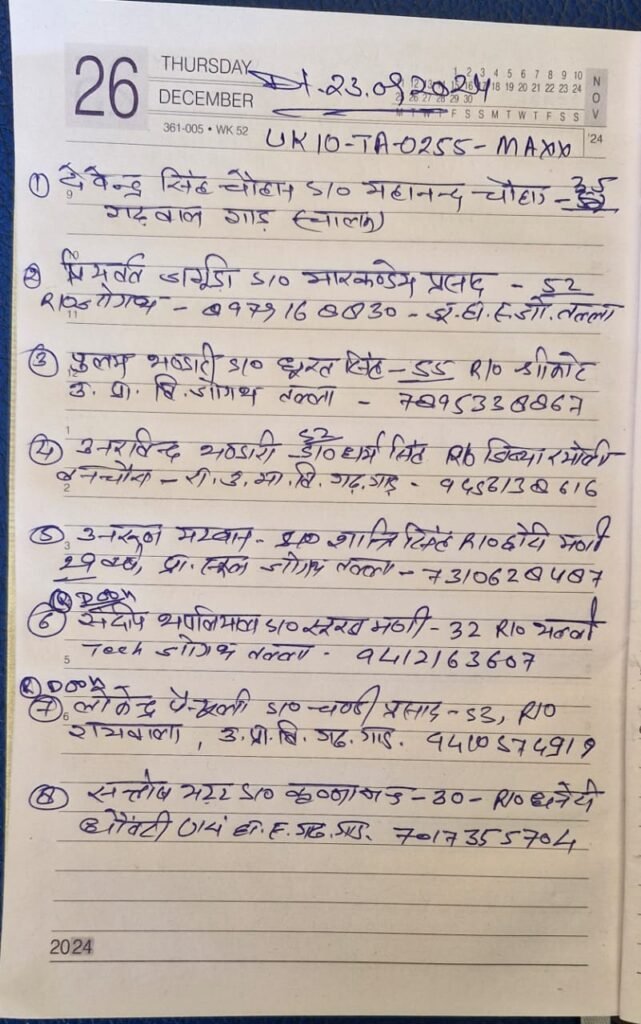 26 THURSDAY DECEMBER
361-005 • WK 52
NOV '24
Dt. 23.09.2024
UK10-TA-0255-MAXX
① देवेन्द्र सिंह चौहान S/O महानन्द चौहान - 35
गढ़वाल गाड़ (चालक)
② S/O मारकण्डेय प्रसाद - 52
R/O जोगथ - 8979168830 - तल्ला
③ पुलम भण्डारी S/O सिंह - 55 R/O श्रीकोट
उ. प्रा. वि. जोगथ तल्ला - 7895338867
④ अरविन्द भण्डारी - 52 S/O धर्म सिंह R/O
बनचौरा - रा. उ. मा. वि. गढ़. गाड़ - 9456138616
⑤ S/O शान्ति सिंह R/O छोटी मणी
29 वर्ष, प्रा. स्कूल जोगथ तल्ला - 7310628487
Doon
⑥ संदीप थपलियाल S/O मणी - 32 R/O
Tech जोगथ तल्ला - 9412163607
Doon
⑦ लोकेन्द्र पैन्यूली S/O चण्डी प्रसाद - 53, R/O
रायवाला, उ. प्रा. वि. गढ. गाड. 9410574919
⑧ सन्तोष भट्ट S/O - 30 - R/O
गढ. गाड. 7017355704
2024